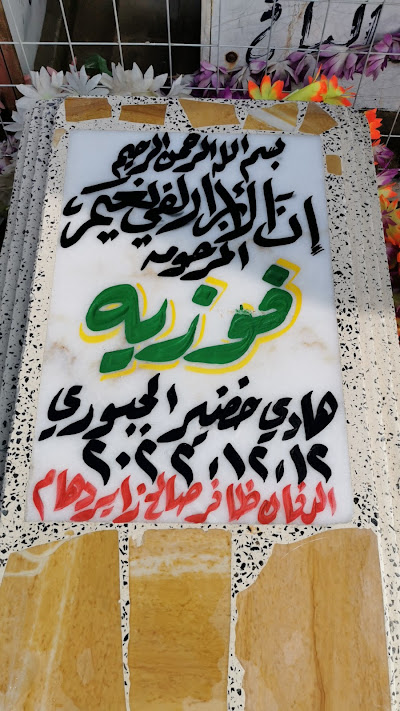 بسم الله الرحمن الرحيم
إن الأبرار لفي نعيم
المرحومة
فوزيه
هادي خضير الجبوري
٢٠٢٢،١٢،١٢
الدفان ظافر صالح زاير دهام